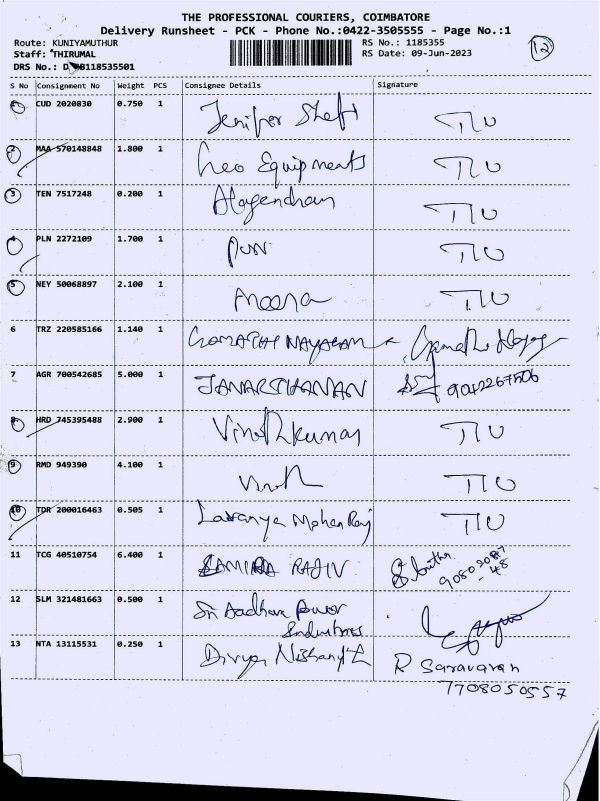 THE PROFESSIONAL COURIERS, COIMBATORE
Delivery Runsheet - PCK - Phone No.:0422-3505555 - Page No.:1
Route: KUNIYAMUTHUR RS No.: 1185355
Staff: THIRUMAL RS Date: 09-Jun-2023
DRS No.: 12
S No Consignment No Weight PCS Consignee Details Signature
1 CUD 2020830 0.750 1 Jenifer T/U
2 MAA 570148848 1.800 1 Equipments T/U
3 TEN 7517248 0.200 1 T/U
4 PLN 2272109 1.700 1 T/U
5 NEY 50068897 2.100 1 T/U
6 TRZ 220585166 1.140 1 GOMATHI NAYAGAM
7 AGR 700542685 5.000 1 JANARTHANAN
8 HRD 745395488 2.900 1 Vinothkumar T/U
9 RMD 949390 4.100 1 T/U
10 TDR 200016463 0.505 1 Lavanya Mohan Raj T/U
11 TCG 40510754 6.400 1 RAJIV
12 SLM 321481663 0.500 1 Sri Aadhava Power
Industries
13 NTA 13115531 0.250 1 Divya Nishanth R Saravanan
7708050557